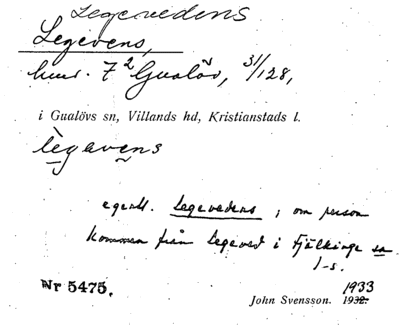 Legevedens
Legevens,
hmd. 7² Gualöv, 31/128,
i Gualövs sn, Villands hd, Kristianstads l.
lègavens
egentl. Legevedens ; om person
kommen från Legeved i Fjälkinge sn
l-s.
Nr 5475.
1933
John Svensson. 1932.